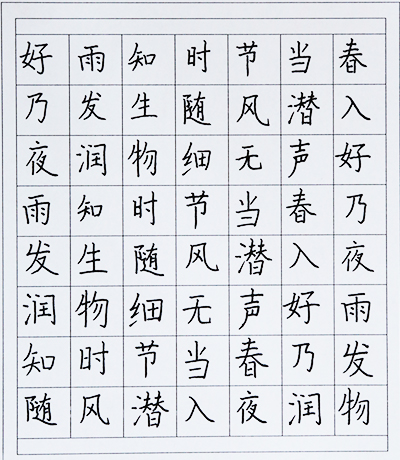 好雨知时节当春
乃发生随风潜入
夜润物细无声好
雨知时节当春乃
发生随风潜入夜
润物细无声好雨
知时节当春乃发
随风潜入夜润物